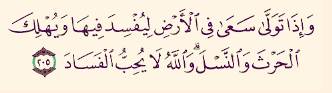 وَإِذَا تَوَلَّىٰ سَعَىٰ فِى ٱلْأَرْضِ لِيُفْسِدَ فِيهَا وَيُهْلِكَ
ٱلْحَرْثَ وَٱلنَّسْلَ ۗ وَٱللَّهُ لَا يُحِبُّ ٱلْفَسَادَ ٢٠٥